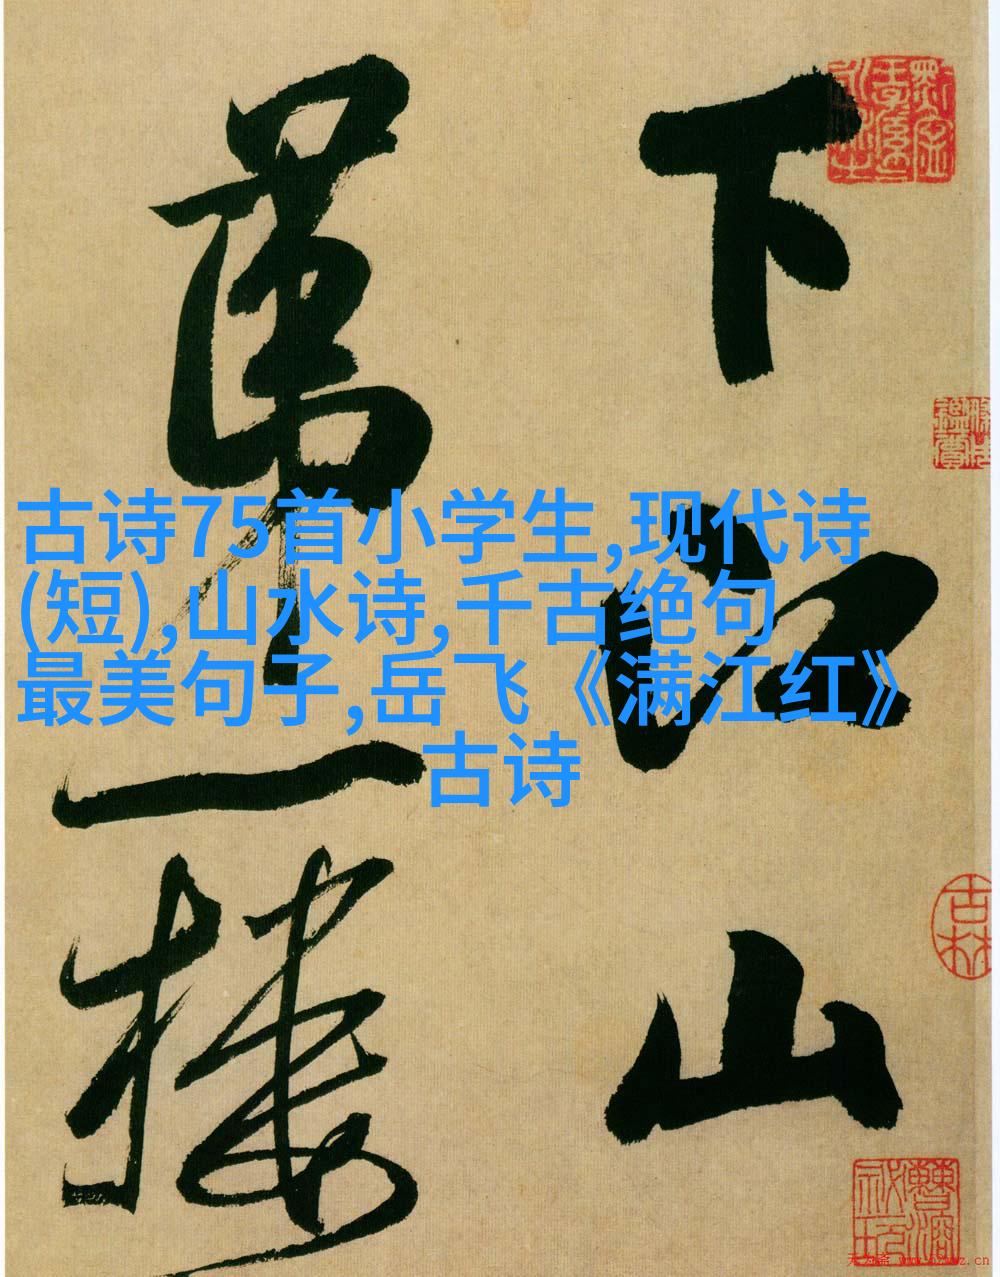 古诗75首小学生,现代诗
(短),山水诗,千古绝句
最美句子,岳飞《满江红》
古诗
下江山
第一楼
古林